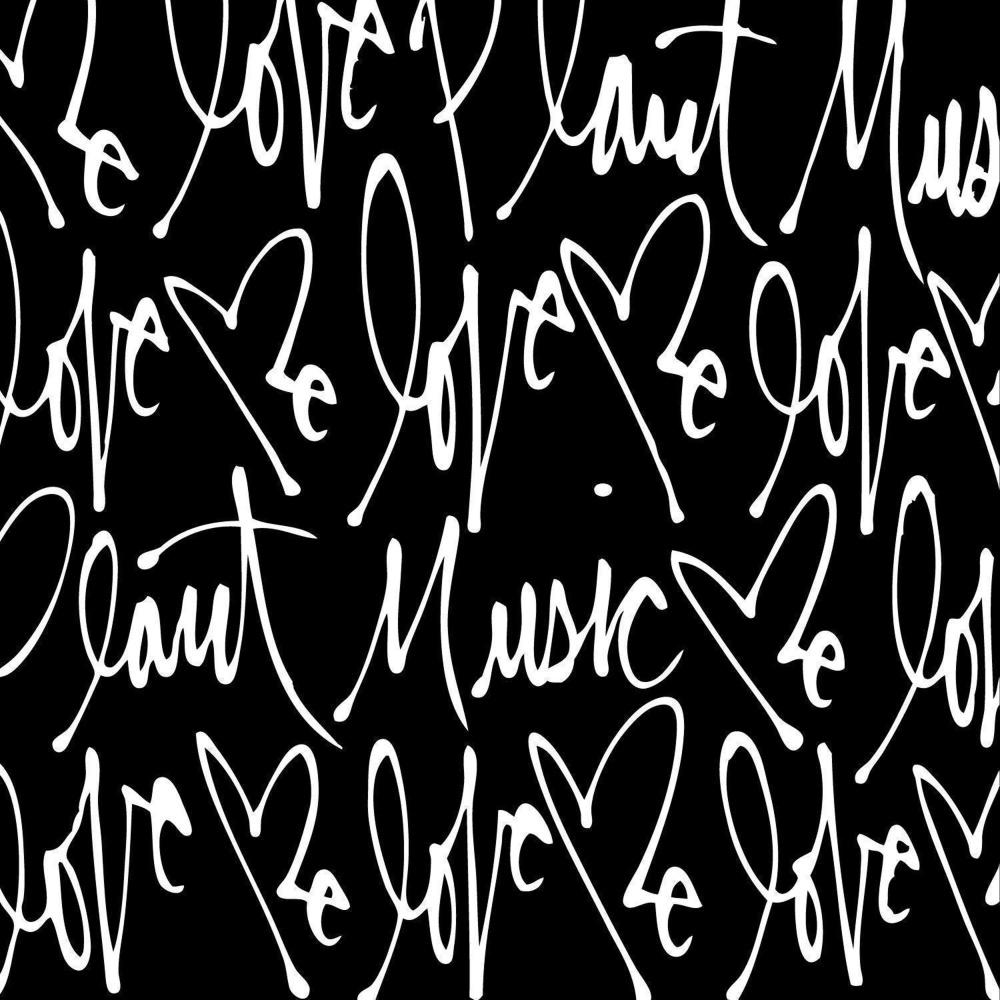 Me love Plaut Mus
love Me love Me love
laut Music Me lo
love Me love Me love